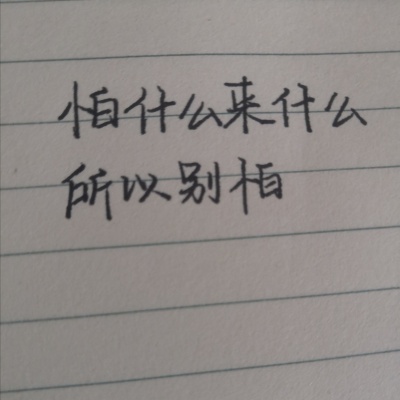 怕什么来什么
所以别怕